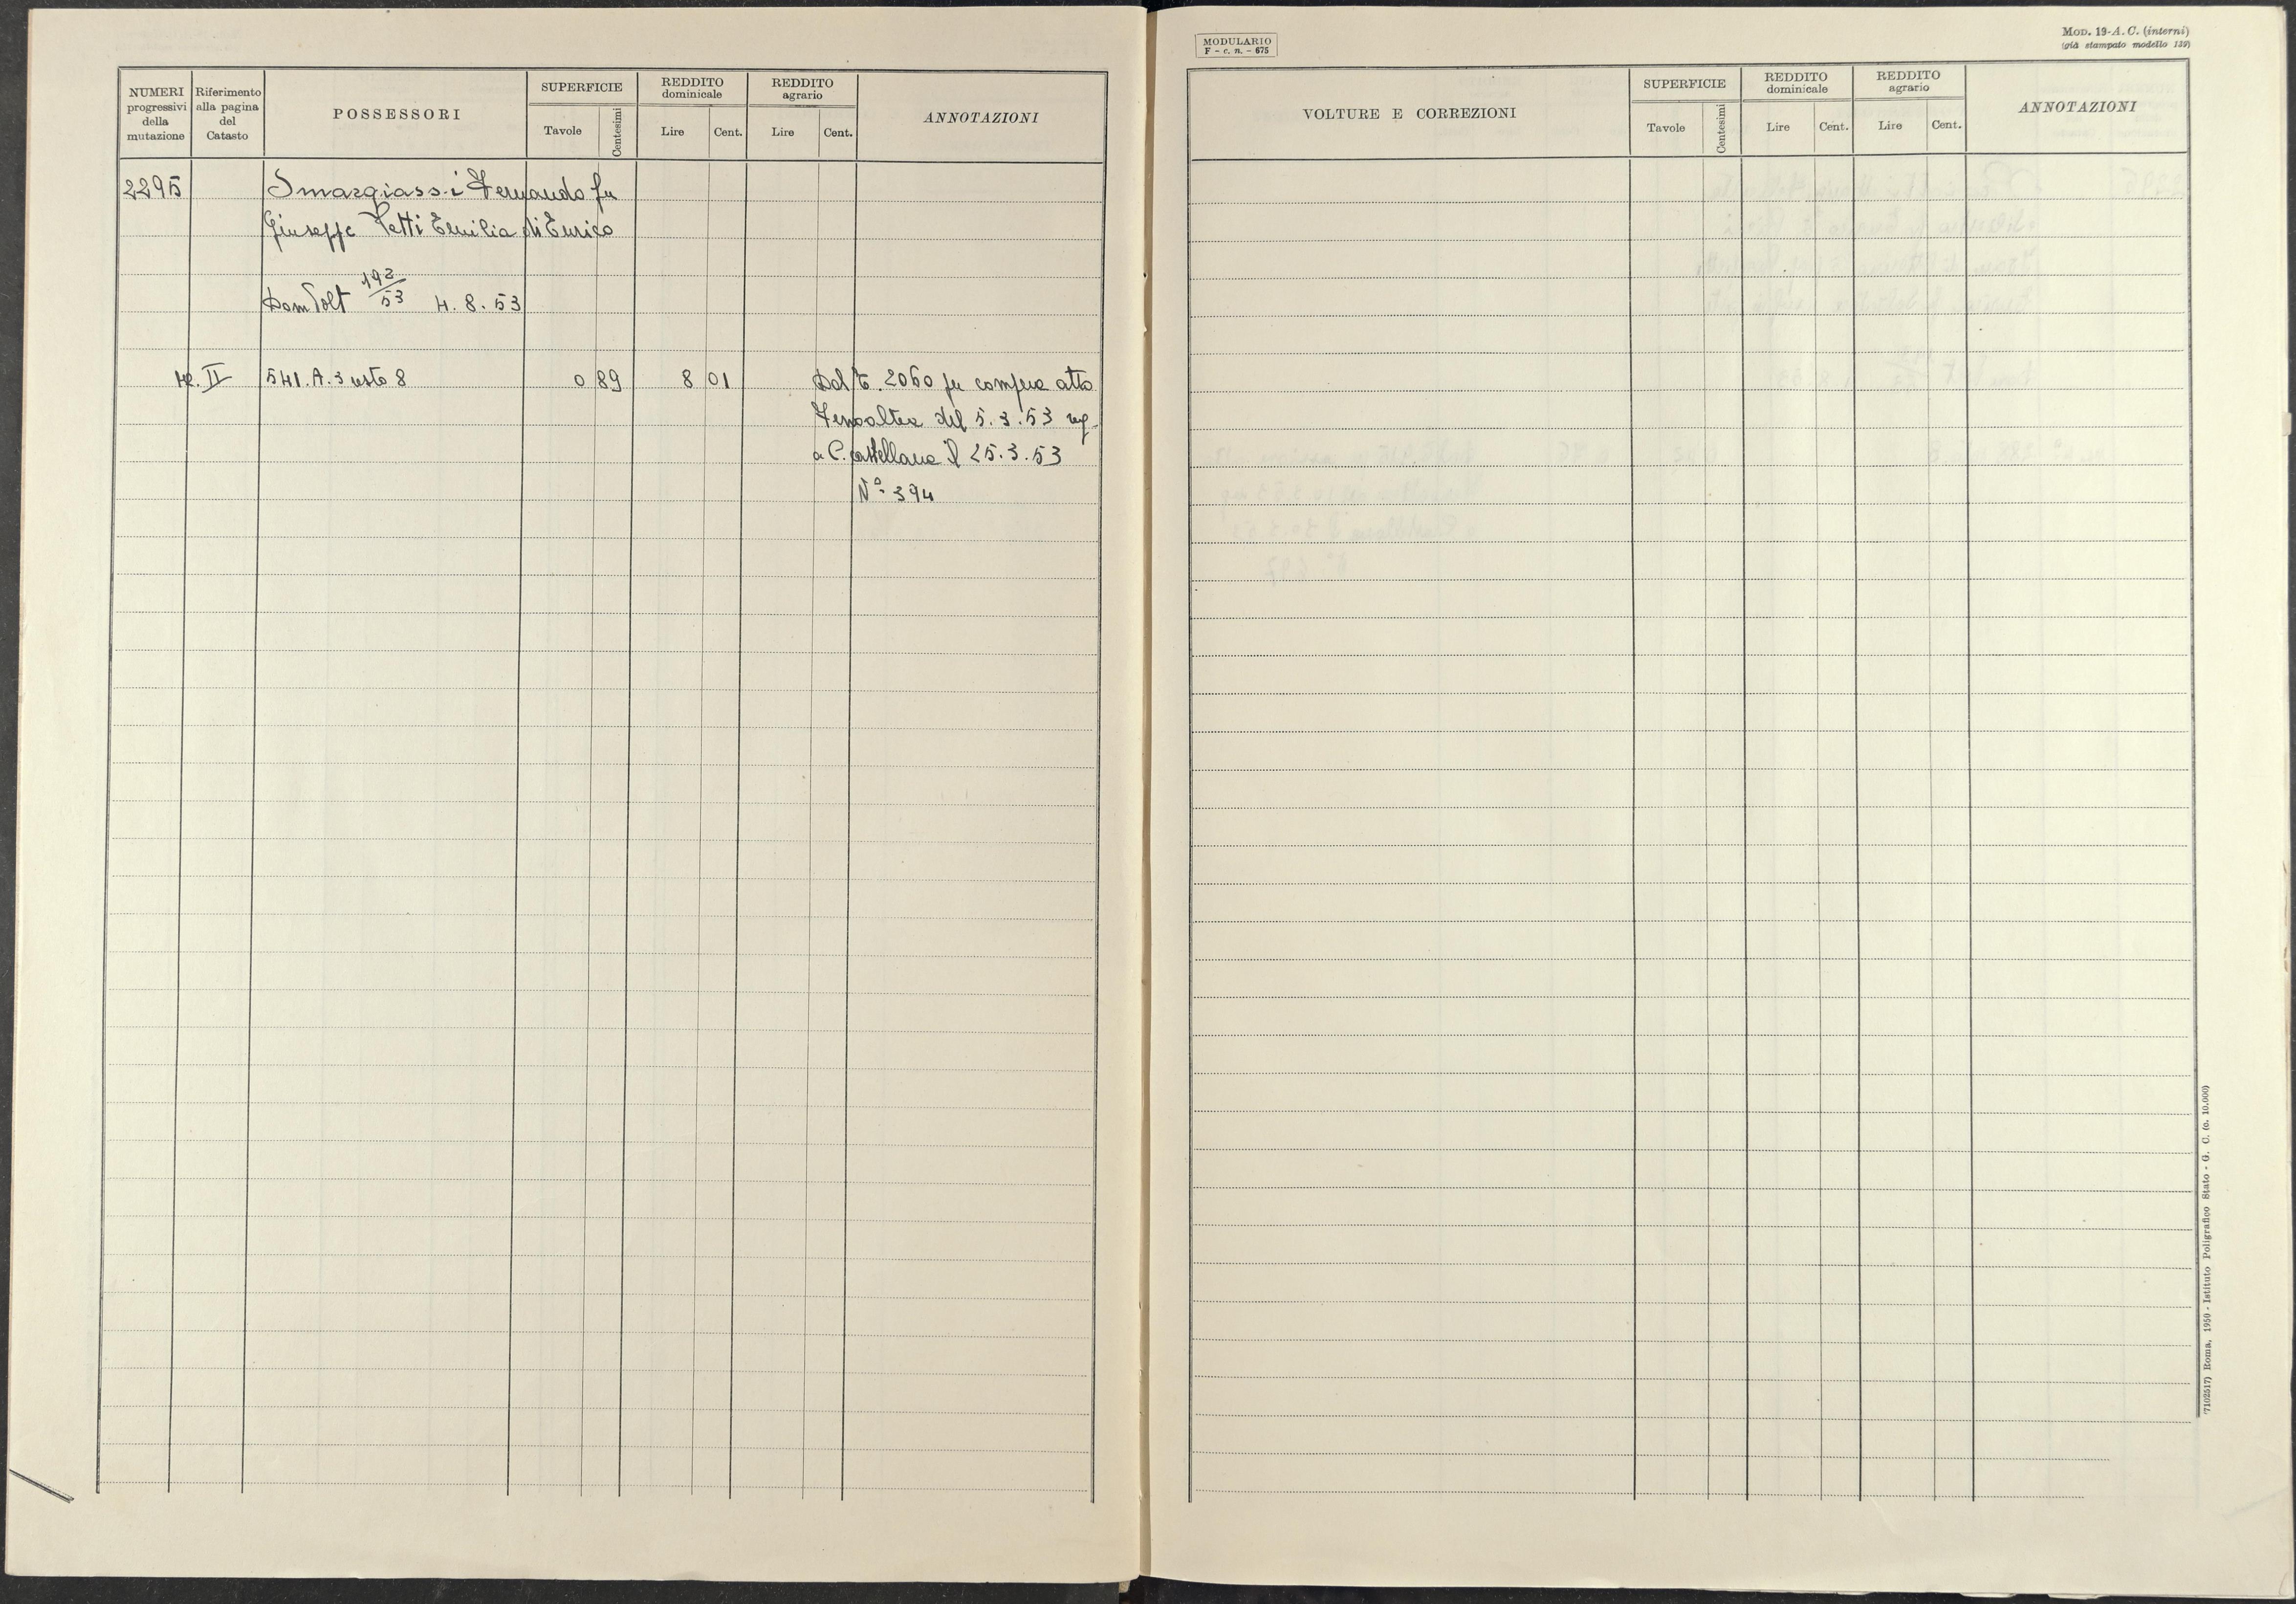 NUMERI progressivi della mutazione
Riferimento alla pagina del Catasto
POSSESSORI
SUPERFICIE
Tavole
Centesimi
REDDITO dominicale
Lire
Cent.
REDDITO agrario
Lire
Cent.
ANNOTAZIONI
2295
Smargiassi Fernando fu
Giuseppe Tetti Emilia di Enrico
Dom Volt 192/53 4.8.53
II 541.A.3 resto 8 0 89 8 01 Dal t. 2060 per compera atto
del 5.3.53 reg
a C. Castellana il 25.3.53
N° 394
MODULARIO
F - c. n. - 675
MOD. 19-A. C. (interni)
(già stampato modello 139)
VOLTURE E CORREZIONI
SUPERFICIE
Tavole
Centesimi
REDDITO dominicale
Lire
Cent.
REDDITO agrario
Lire
Cent.
ANNOTAZIONI
(7102517) Roma, 1950 - Istituto Poligrafico Stato - G. C. (c. 10.000)